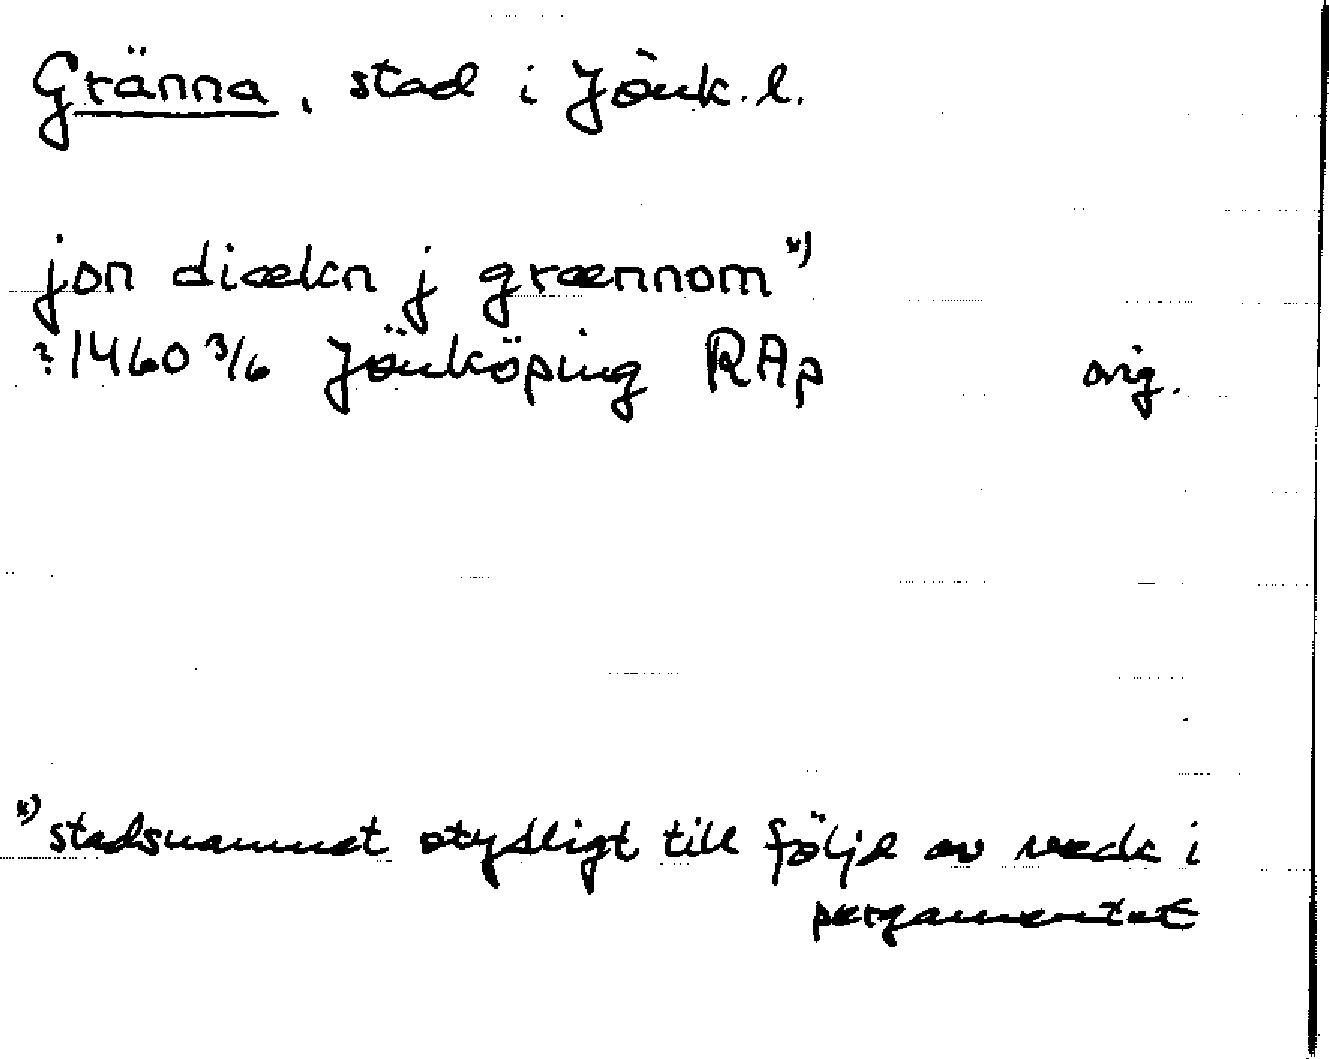 Gränna, stad i Jönk. l.
jon diækn j grænnom *)
? 1460 3/6 Jönköping RAp orig.
*) stadsnamnet otydligt till följd av veck i
pergamentet